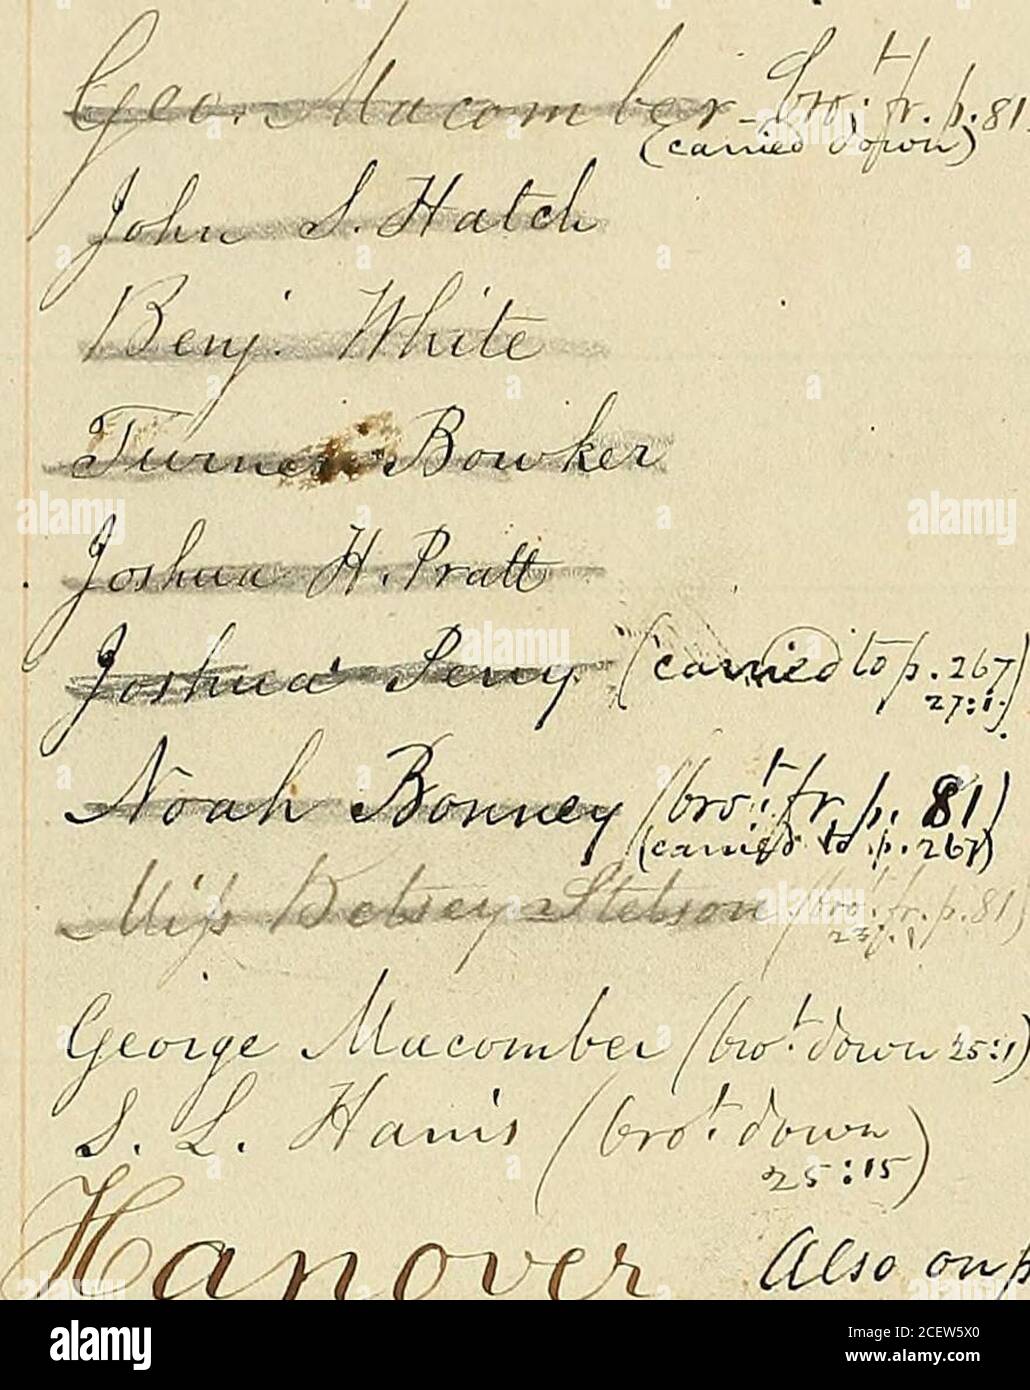 Geo. Macomber - bro.t fr. p. 81.
(carried down)
John S. Hatch
Benj. White
Turner Bowker
Joshua H. Pratt
Joshua Perry (carried to p. 267
27:1.)
Noah Bonney (bro.t fr. p. 81)
(carried to p. 267)
Miss Betsey Stetson (bro.t fr. p. 81)
23
George Macomber (bro.t down 25:1)
S. L. Harris (bro.t down
25:15)
Hanover Also on p
alamy
Image ID: 2CEW5X0
www.alamy.com